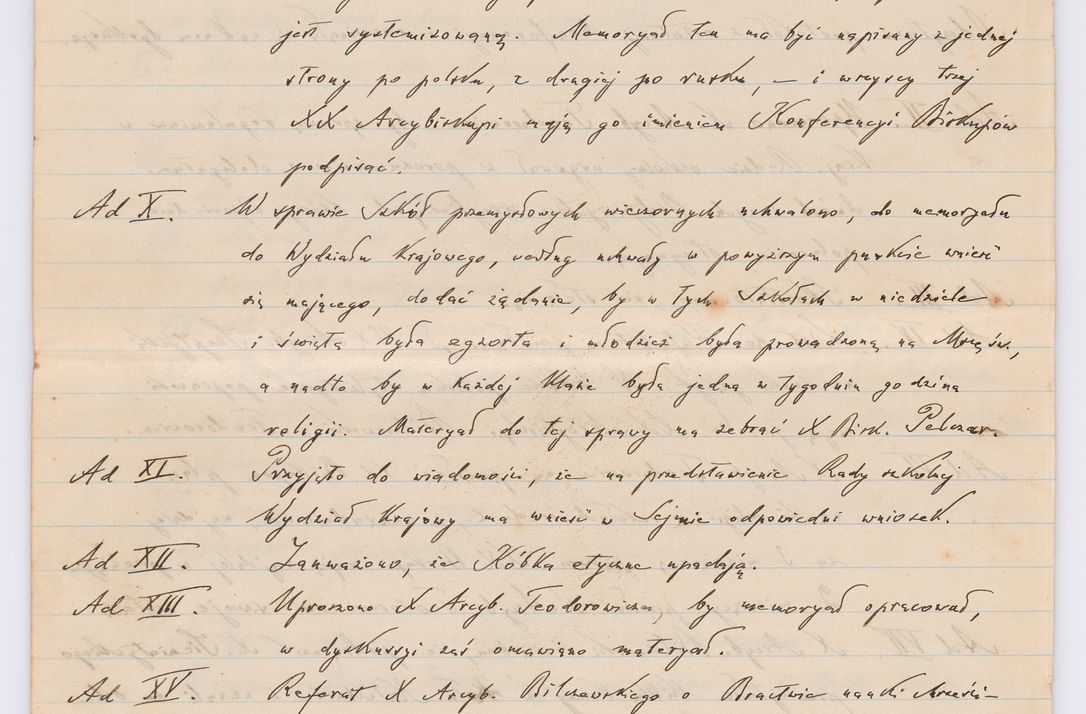 jest systemizowaną. Memoryał ten ma być napisany z jednej
strony po polsku, z drugiej po rusku, — i wszyscy trzej
XX Arcybiskupi mają go imieniem Konferencyi Biskupów
podpisać.
Ad X. W sprawie Szkół przemysłowych wieczornych uchwalono, do memoryału
do Wydziału Krajowego, według uchwały w powyższym punkcie wnieść
się mającego, dodać żądanie, by w tych Szkołach w niedziele
i święta była egzorta i młodzież była prowadzoną na Mszę św.,
a nadto by w każdej klasie była jedna w tygodniu godzina
religii. Materyał do tej sprawy ma zebrać X Bisk. Pelczar.
Ad XI. Przyjęto do wiadomości, że na przedstawienie Rady szkolnej
Wydział Krajowy ma wnieść w Sejmie odpowiedni wniosek.
Ad XII. Zauważono, że Kółka etyczne upadają.
Ad XIII. Uproszono X Arcyb. Teodorowicza, by memoryał opracował,
w dyskussyi zaś omawiano materyał.
Ad XV. Referat X Arcyb. Bilczewskiego o Bractwie nauki chrześci-